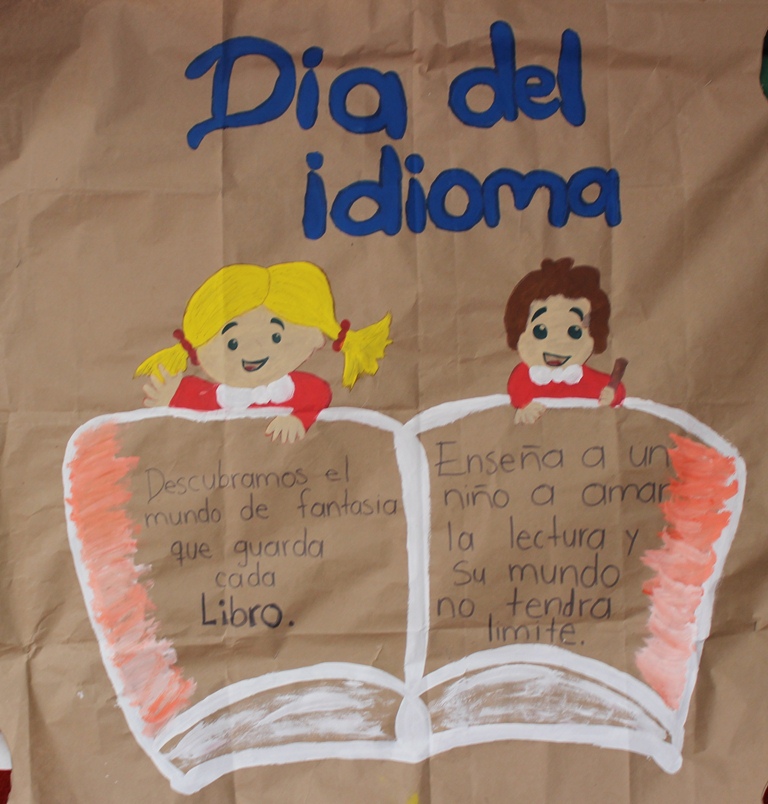 Dia del
idioma
Descubramos el
mundo de fantasia
que guarda
cada
Libro.
Enseña a un
niño a amar
la lectura y
Su mundo
no tendra
limite.